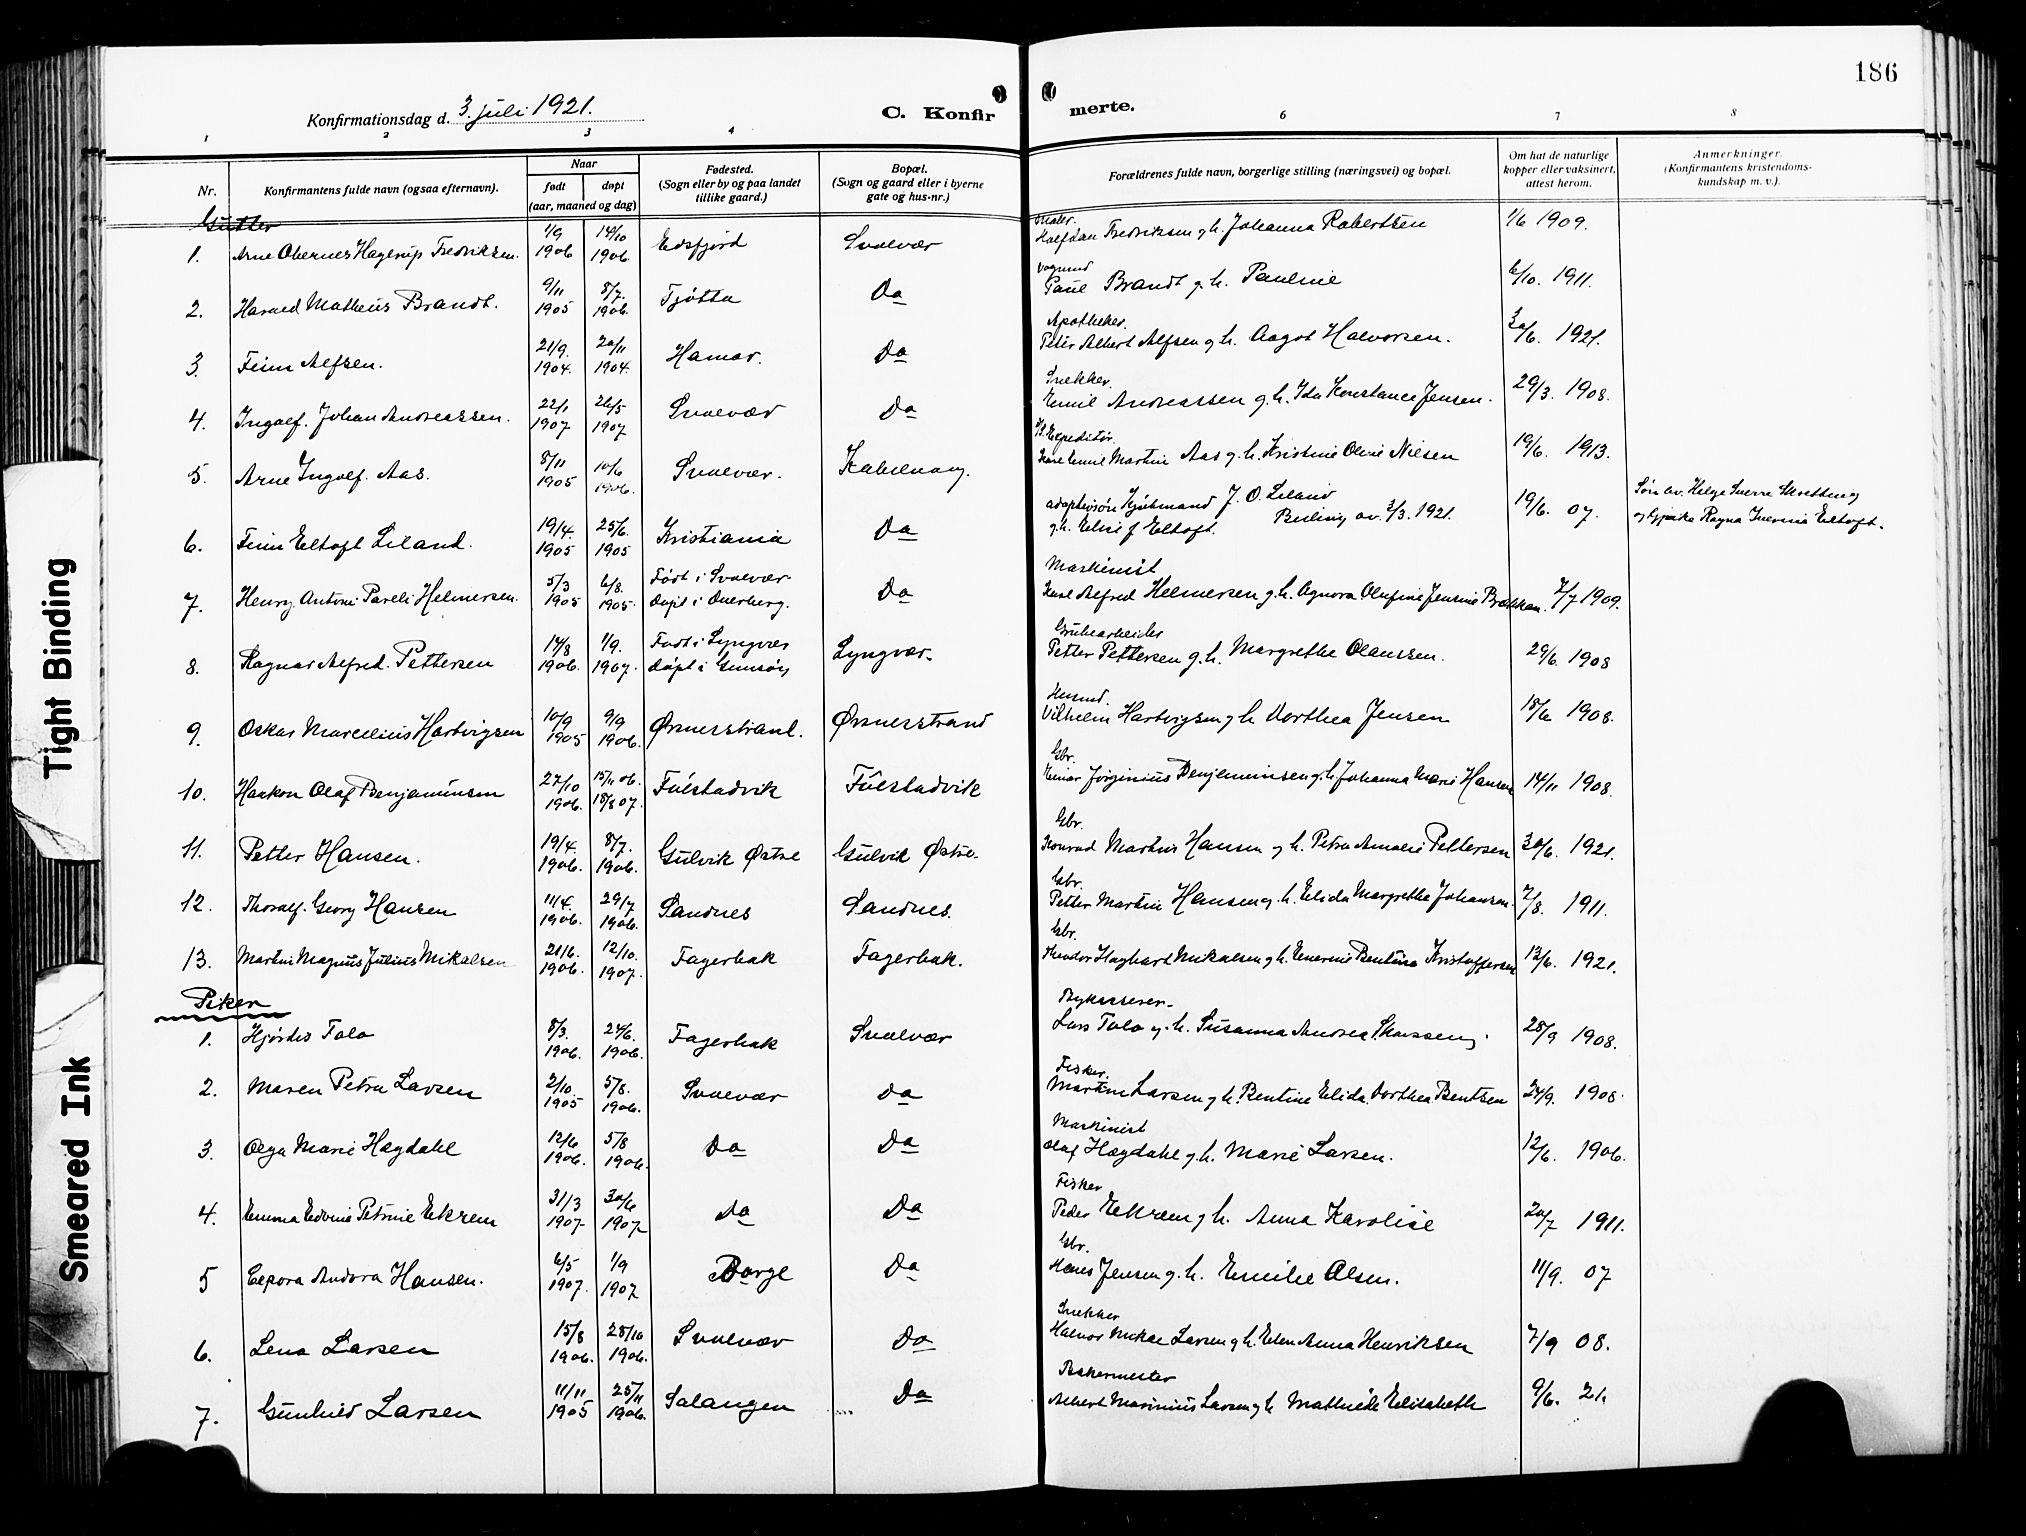 186
Konfirmationsdag d. 3. juli 1921.
C. Konfir
merte.
1 2 3 4 6 7 8
Nr.
Konfirmantens fulde navn (ogsaa efternavn).
Naar
født døpt
(aar, maaned og dag)
Fødested.
(Sogn eller by og paa landet
tillike gaard.)
Bopæl.
(Sogn og gaard eller i byerne
gate og hus-nr.)
Forældrenes fulde navn, borgerlige stilling (næringsvei) og bopæl.
Om hat de naturlige
kopper eller vaksinert,
attest herom.
Anmerkninger.
(Konfirmantens kristendoms-
kundskap m. v.).
Gutter
Maler.
1. Arne Hagerup Fredriksen. 1/9 1906 14/10 1906. Edsfjord Svolvær Halfdan Fredriksen g. h. Johanna Robertsen 1/6 1909.
2. Harald Matheus Brandt. 9/11 1905 8/7. 1906. Tjøtta Do Paul Brandt g. h. Pauline 6/10. 1911.
Apotheker.
3. Finn Alfsen. 21/9. 1904. 20/11 1904. Hamar. Do Peter Albert Alfsen g. h. Aagot Halvorsen. 30/6. 1921.
Snekker.
4. Ingolf. Johan Andreassen. 22/1 1907 26/5 1907 Svolvær Do Emil Andreassen g. h. Ida Konstance Jensen. 29/3. 1908.
Expeditør.
5. Arne Ingolf. Aas. 8/11 1905 10/6 1906. Svolvær. Kabelvaag. Karl Emil Martin Aas g. h. Kristine Oline Nilsen 19/6. 1913.
6. Finn Eltoft Leland. 19/4. 1905 25/6. 1905 Kristiania Do adoptivsøn Kjøbmand J. O. Leland
g. h. Elise f Eltoft. Bevilling av. 2/3. 1921. 19/6. 07. Søn av. Helge Sverre
og Ragna Eltoft.
Maskinist
7. Henry Antoni Pareli Helmersen. 5/3 1905 6/8. 1905. Født i Svolvær
døpt i Karl Alfred Helmersen g. h. Agnora Olufine Jensine 7/7 1909.
Grubearbeider
8. Ragnar Alfred. Pettersen 14/8 1906. 1/9. 1907. Født i Lyngvær
døpt i Gimsøy Lyngvær. Petter Pettersen g. h. Margrethe Olaussen. 29/6. 1908
Husmd.
9. Oskar Marcelius Hartvigsen 10/9 1905 9/9 1906. Ørsnesstrand. Ørsnesstrand Vilhelm Hartvigsen g h Dorthea Jensen 18/6 1908.
Gbr.
10. Haakon Olaf Benjaminsen 27/10 1906. 15/11 06. 18/8 07. Fülstadvik Fülstadvik Einar Jørginius Benjaminsen g. h. Johanna Marie Hansen 14/11 1908.
Gbr.
11. Petter Hansen. 19/4. 1906. 8/7. 1906. Gulvik Østre Gulvik Østre. Konrad Martin Hansen g h. Petra Amalie Pettersen 30/6. 1921.
Gbr.
12. Thoralf. Georg Hansen 11/4. 1906. 29/7 1906. Sandnes Sandnes. Petter Martin Hansen g. h. Elida Margrethe Johansen. 2/8. 1911.
Gbr.
13. Martin Magnus Julius Mikalsen 21/6. 1906. 12/10. 1907. Fagerbak Fagerbak. Theodor Hagbart Mikalsen g. h. Bentine Kristoffersen 12/6. 1921.
Piker
Bykasserer.
1. Hjørdis Falo 8/3. 1906. 24/6. 1906. Fagerbak Svolvær Lars Falo g. h. Susanna Andrea 28/9 1908.
Fisker.
2. Maren Petra Larsen 2/10. 1905 5/8. 1906. Svolvær Do Martin Larsen g h. Bentine Elida. Dorthea Bentsen 24/9. 1908.
Maskinist
3. Olga Marie Høgdahl 12/6 1906. 5/8 1906. Do Do Olaf Høgdahl g. h. Marie Larsen. 12/6. 1906.
Fisker
4. Emma Edvine Petrine Ekrem 31/3 1907. 30/6 1907 Do Do Peder Ekrem g h. Anna Karoline 20/7 1911.
Gbr.
5 Andora Hansen. 6/5 1907. 1/9 1907 Borge Do Hans Jensen g. h. Emilie Olsen. 11/9. 07
Snekker
6. Lena Larsen 15/8 1906. 28/10 1906. Svolvær Do Halvor Mikal Larsen g h. Elen Anna Henriksen 7/9 08.
Bakermester
7. Gunhild Larsen 11/11 1905 25/11 1906. Salangen Do Albert Marinius Larsen g h Mathilde Elisabeth 9/6. 21.
Tight Binding
Smeared Ink